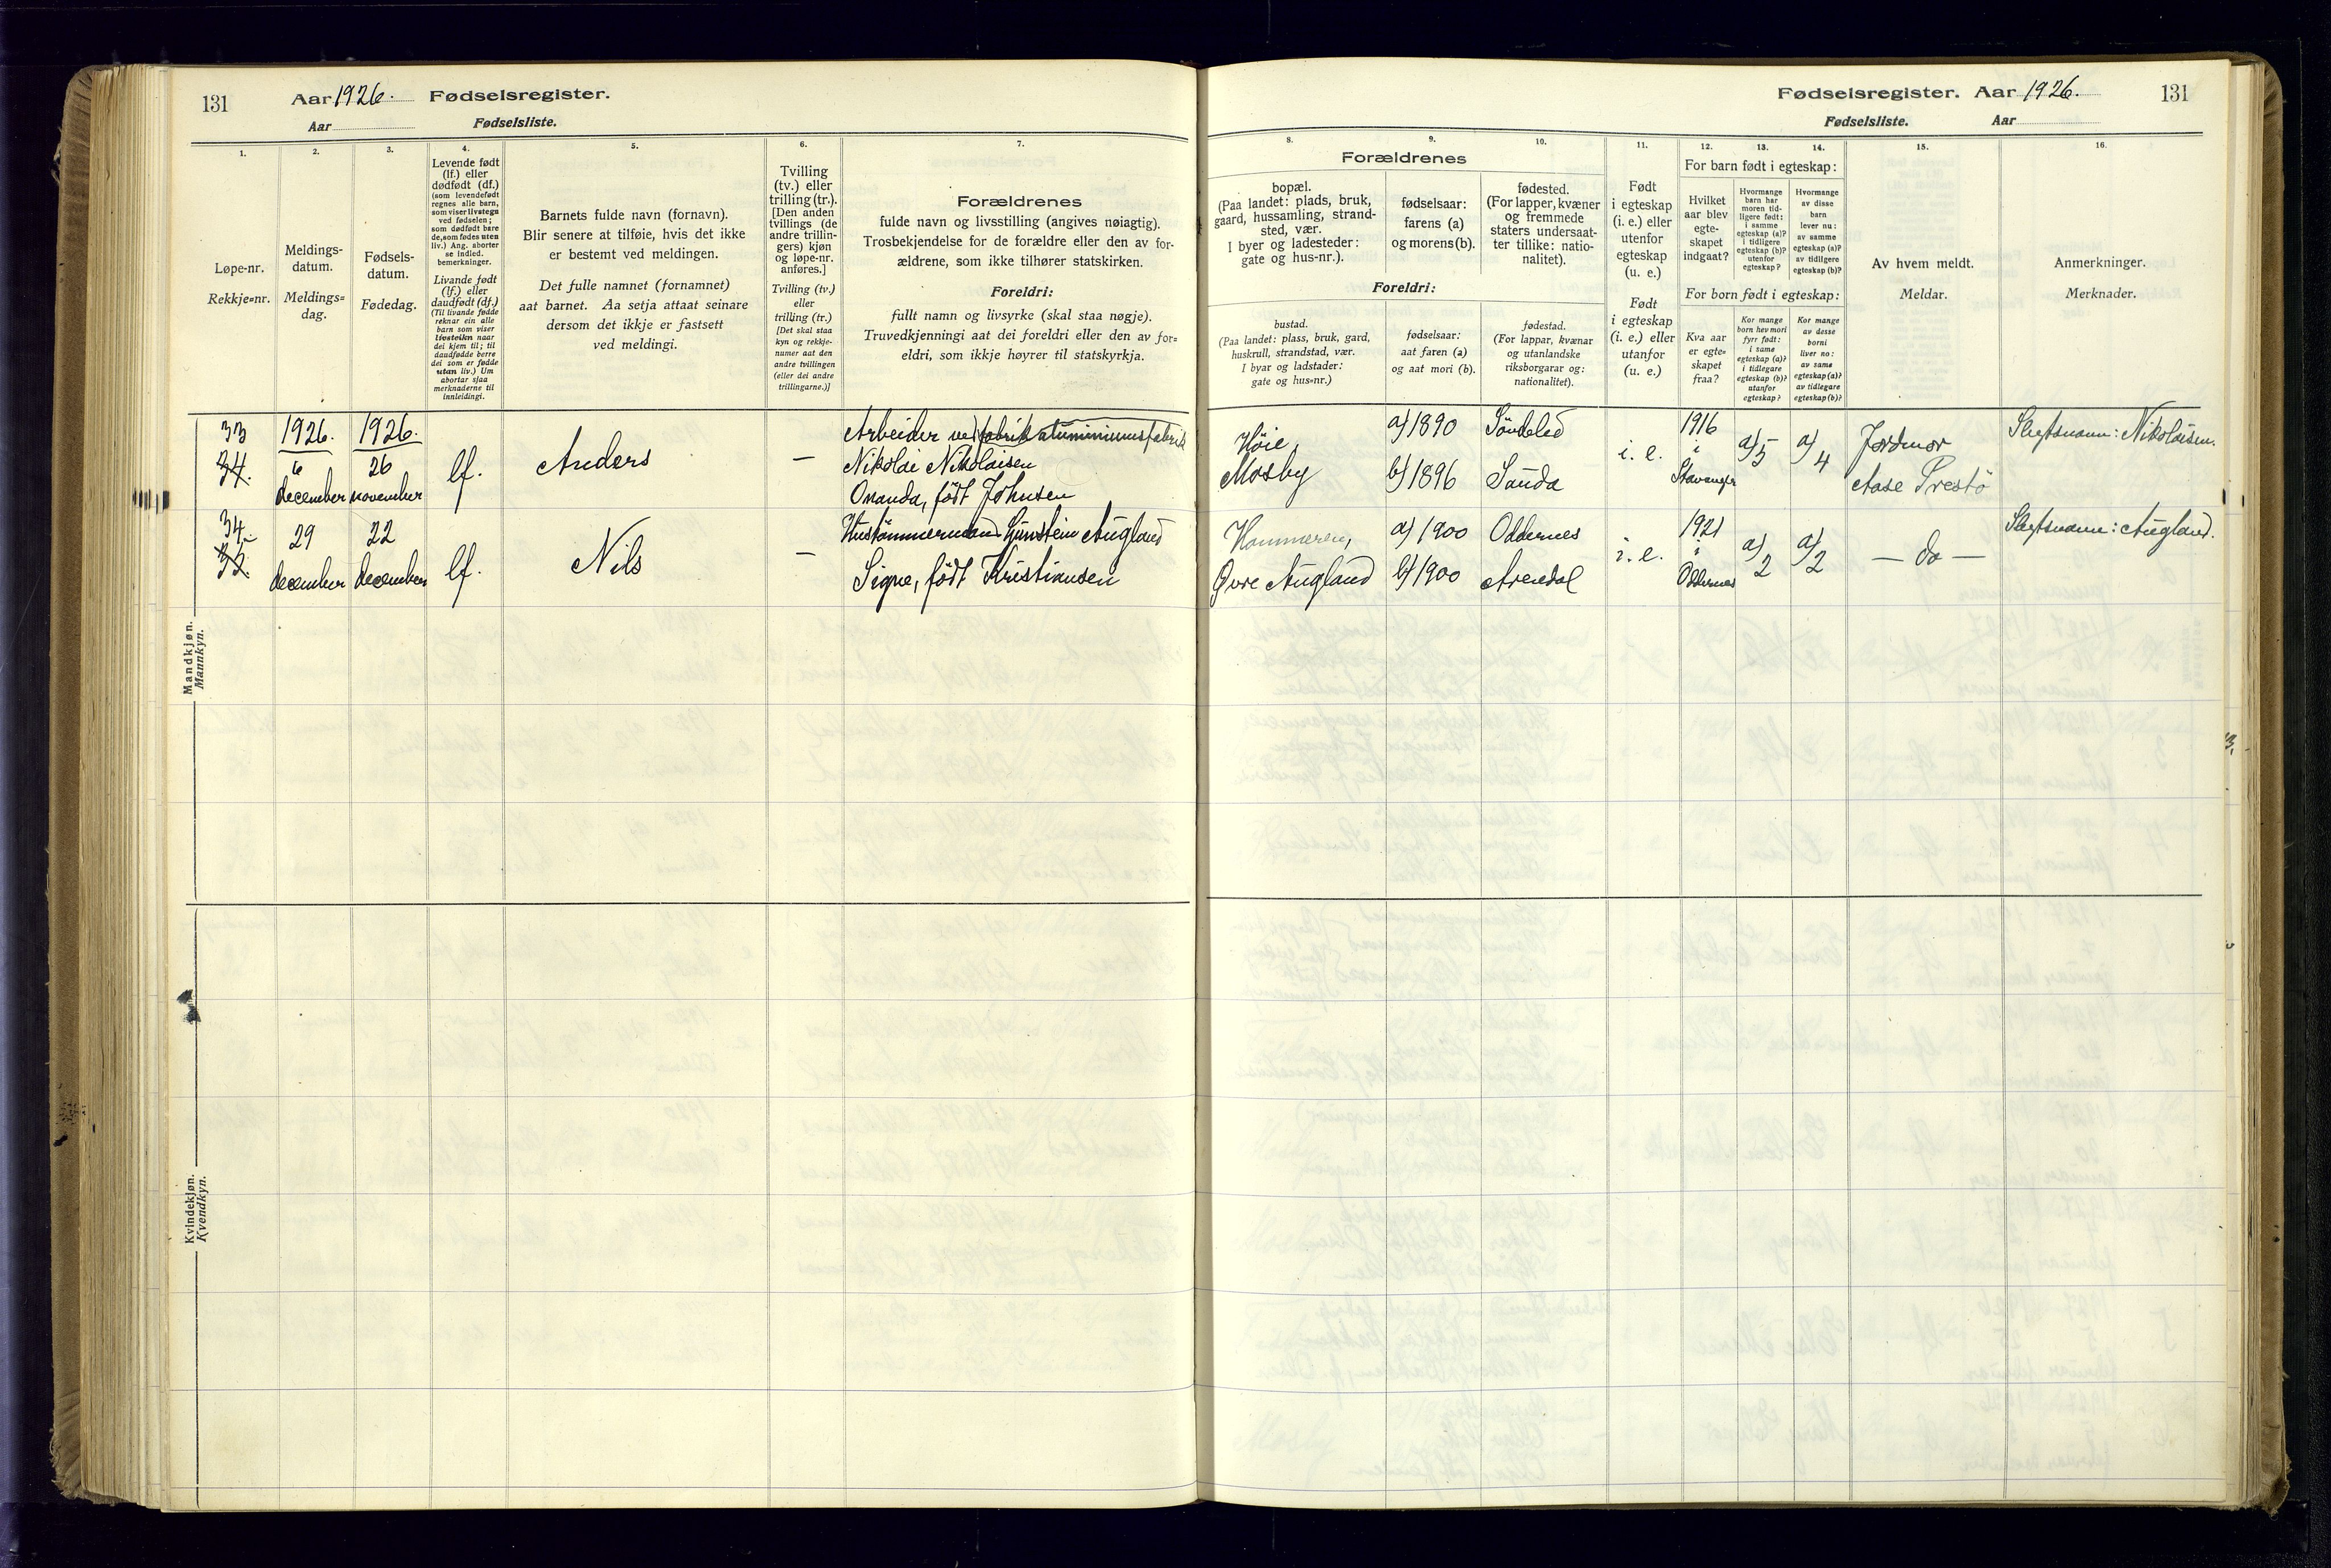 131 Aar 1926. Fødselsregister.
Aar Fødselsliste.
Fødselsregister. Aar 1926. 131
Fødselsliste. Aar
1.
Løpe-nr.
Rekkje=nr.
2.
Meldings-
datum.
Meldings=
dag.
3.
Fødsels-
datum.
Fødedag.
4.
Levende født
(lf.) eller
dødfødt (df.)
(som levendefødt
regnes alle barn,
som viser livstegn
ved fødselen;
som dødfødt bare
de, som fødes uten
liv.) Ang. aborter
se indled.
bemerkninger.
Livande født
(lf.) eller
daudfødt (df.)
(Til livande fødde
reknar ein alle
barn som viser
livsteikn naar
dei kjem til; til
daudfødde berre
dei som er fødde
utan liv.) Um
abortar sjaa
merknaderne til
innleidingi.
5.
Barnets fulde navn (fornavn).
Blir senere at tilføie, hvis det ikke
er bestemt ved meldingen.
Det fulle namnet (fornamnet)
aat barnet. Aa setja attaat seinare
dersom det ikkje er fastsett
ved meldingi.
6.
Tvilling
(tv.) eller
trilling (tr.).
[Den anden
tvillings (de
andre trillin-
gers) kjøn
og løpe-nr.
anføres.]
Tvilling (tv.)
eller
trilling (tr.)
[Det skal staa
kyn og rekkje-
numer aat den
andre tvillingen
(eller dei andre
trillingarne.)]
7.
Forældrenes
fulde navn og livsstilling (angives nøiagtig).
Trosbekjendelse for de forældre eller den av for-
ældrene, som ikke tilhører statskirken.
Foreldri:
fullt namn og livsyrke (skal staa nøgje).
Truvedkjenningi aat dei foreldri eller den av for=
eldri, som ikkje høyrer til statskyrkja.
Forældrenes
8.
bopæl.
(Paa landet: plads, bruk,
gaard, hussamling, strand-
sted, vær.
I byer og ladesteder:
gate og hus-nr.).
9.
fødselsaar:
farens (a)
og morens (b).
10.
fødested.
(For lapper, kvæner
og fremmede
staters undersaat-
ter tillike: natio-
nalitet).
Foreldri:
bustad.
(Paa landet: plass, bruk, gard,
huskrull, strandstad, vær.
I byar og ladstader:
gate og hus=nr.)
fødselsaar:
aat faren (a)
og aat mori (b).
fødestad.
(For lappar, kvænar
og utanlandske
riksborgarar og:
nationalitet).
11.
Født
i egteskap
(i. e.) eller
utenfor
egteskap
(u. e.)
Født
i egteskap
(i. e.) eller
utanfor
(u. e.)
For barn født i egteskap:
12.
Hvilket
aar blev
egte-
skapet
indgaat?
13.
Hvormange
barn har
moren tid-
ligere født:
i samme
egteskap (a)?
i tidligere
egteskap (b)?
utenfor
egteskap?
14.
Hvormange
av disse
barn
lever nu:
av samme
egteskap (a)?
av tidligere
egteskap (b)?
For born født i egteskap:
Kva aar
er egte=
skapet
fraa?
Kor mange
born hev mori
fyrr født:
i same
egteskap (a)?
i tidlegare
egteskap (b)?
utanfor
egteskap?
Kor mange
av desse
borni
liver no:
av same
egteskap (a)?
av tidlegare
egteskap (b)?
15.
Av hvem meldt.
Meldar.
16.
Anmerkninger.
Merknader.
Mandkjøn.
Mannkyn.
33
34.
1926.
6
december
1926.
26
november
lf.
Anders
—
Arbeider ved fabrik aluminiumsfabrik
Nikolai Nikolaisen
Omanda, født Johnsen
Høie,
Mosby
a) 1890
b) 1896
Søndeled
Sauda
i. e.
1916
i
Stavanger
a) 5
a) 4
Jordmor
Aase Prestø
Slegtsnavn: Nikolaisen.
34.
29
december
22
december
lf.
Nils
—
Hustømmermand Gunstein Augland
Signe, født Kristiansen
Hammeren,
Øvre Augland
a) 1900
b) 1900
Oddernes
Arendal
i. e.
1921
i
Oddernes
a) 2
a) 2
— do —
Slegtsnavn: Augland.
Kvindekjøn.
Kvendkyn.